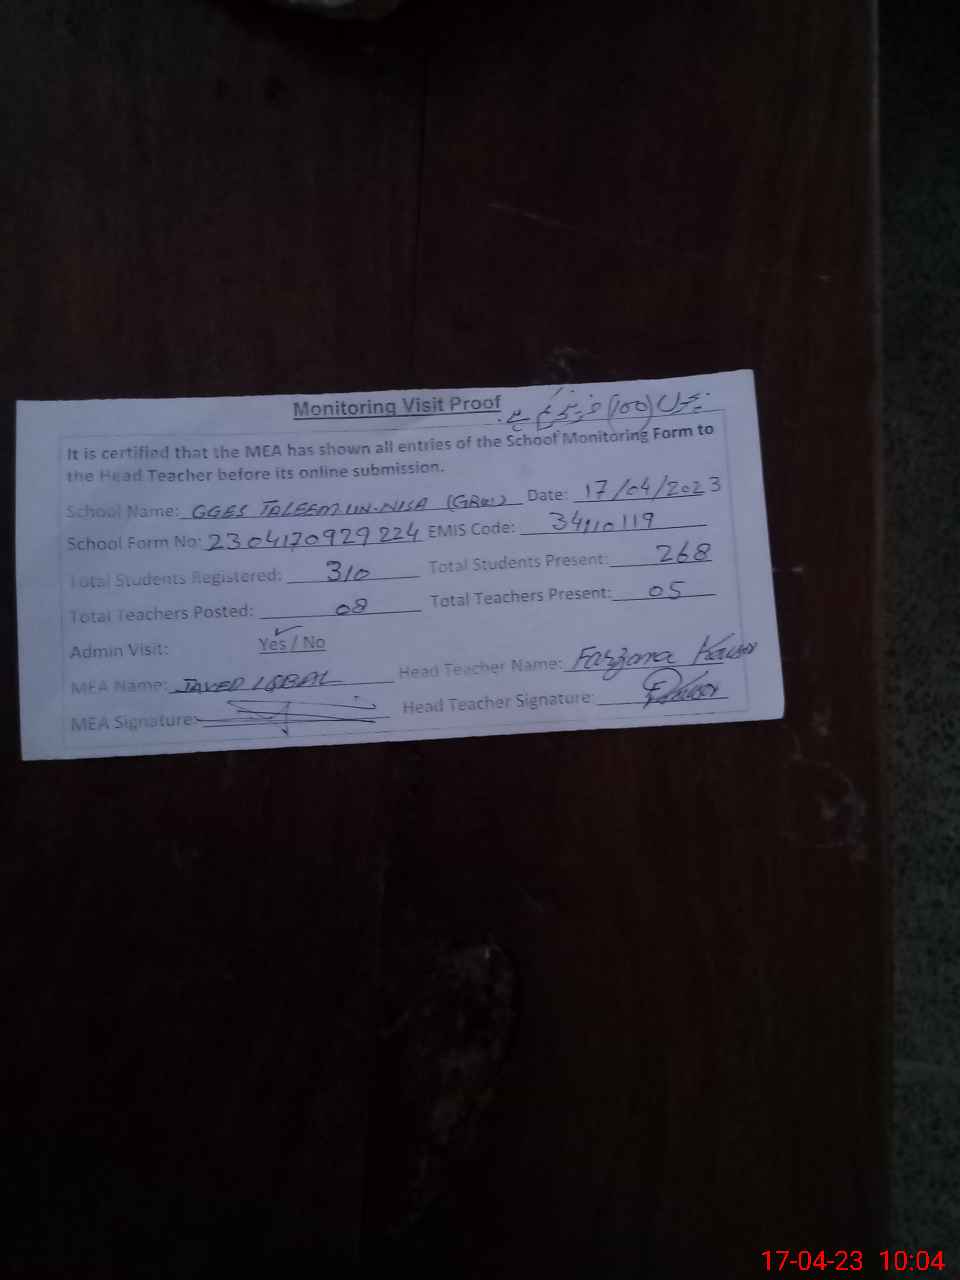 Monitoring Visit Proof (100)
It is certified that the MEA has shown all entries of the School Monitoring Form to
the Head Teacher before its online submission.
School Name: GGES TALEEM UN-NISA (GRW) Date: 17/04/2023
School Form No: 230417092922 4 EMIS Code: 34110119
Total Students Registered: 310 Total Students Present: 268
Total Teachers Posted: 08 Total Teachers Present: 05
Admin Visit: Yes / No
MEA Name: JAVED IQBAL Head Teacher Name: Fazzana Kauser
MEA Signature: Head Teacher Signature: FKauser
17-04-23 10:04